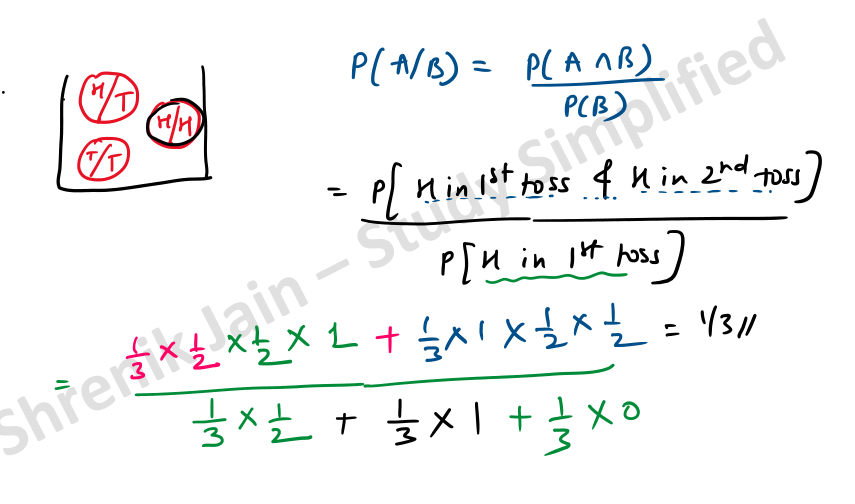 P(A/B) = P(A ∩ B) / P(B)
H/T
H/H
T/T
= P[H in 1st toss & H in 2nd toss] / P[H in 1st toss]
= (1/3 × 1/2 × 1/2 × 1 + 1/3 × 1 × 1/2 × 1/2) / (1/3 × 1/2 + 1/3 × 1 + 1/3 × 0) = 1/3 //
Shrenik Jain – Study Simplified